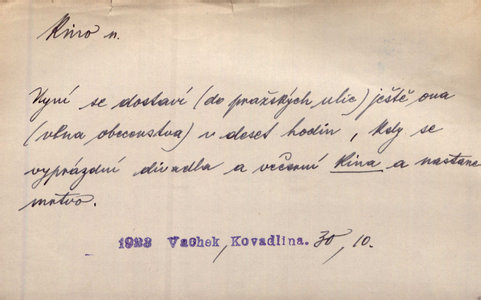 Kino n.
Nyní se dostaví (do pražských ulic) ještě ona
(vlna obecenstva) v deset hodin, kdy se
vyprázdní divadla a večerní kina a nastane
mrtvo.
1922 Vachek, Kovadlina. 30, 10.